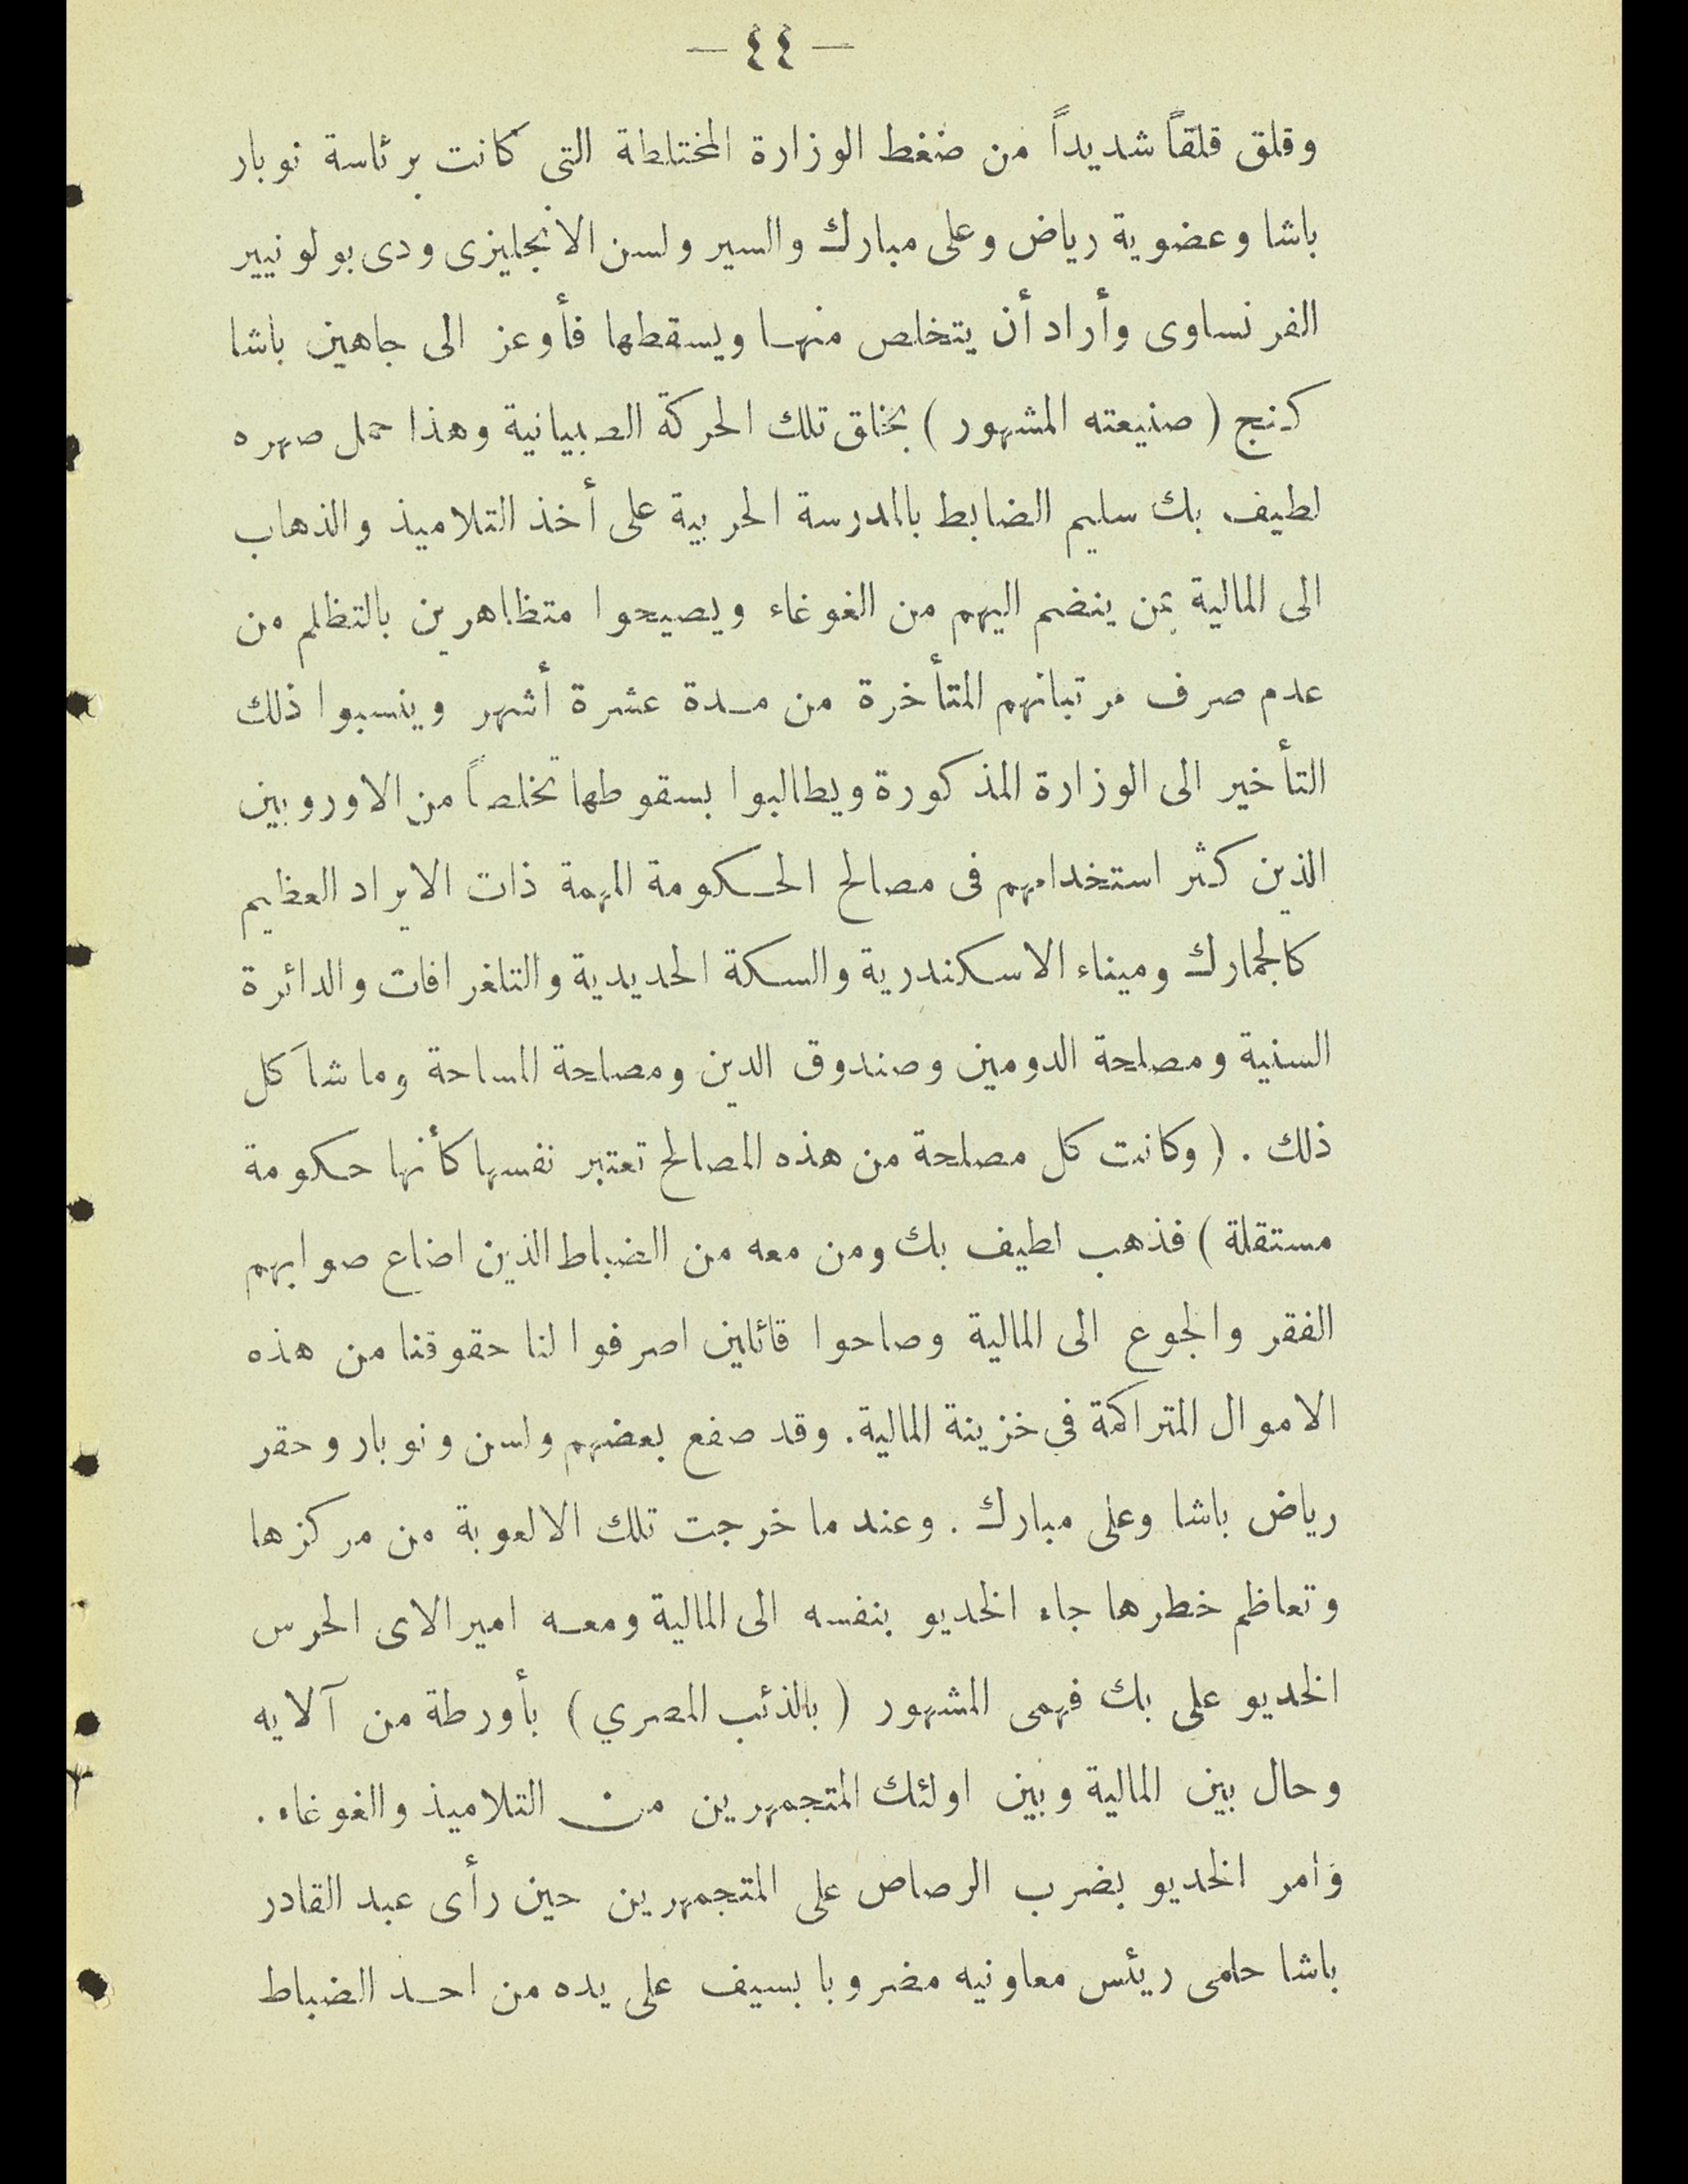 — ٤٤ —
وقلق قلقاً شديداً من ضغط الوزارة المختلطة التى كانت برئاسة نوبار
باشا وعضوية رياض وعلى مبارك والسير ولسن الانجليزى ودى بولونيير
الفرنساوى وأراد أن يتخلص منها ويسقطها فأوعز الى جاهين باشا
كنج (صنيعته المشهور) بخلق تلك الحركة الصبيانية وهذا حمل صهره
لطيف بك سليم الضابط بالمدرسة الحربية على أخذ التلاميذ والذهاب
الى المالية بمن ينضم اليهم من الغوغاء ويصيحوا متظاهرين بالتظلم من
عدم صرف مرتباتهم المتأخرة من مدة عشرة أشهر وينسبوا ذلك
التأخير الى الوزارة المذكورة ويطالبوا بسقوطها تخلصاً من الاوروبين
الذين كثر استخدامهم فى مصالح الحكومة المهمة ذات الايراد العظيم
كالجمارك وميناء الاسكندرية والسكة الحديدية والتلغرافات والدائرة
السنية ومصلحة الدومين وصندوق الدين ومصلحة المساحة وما شاكل
ذلك . (وكانت كل مصلحة من هذه المصالح تعتبر نفسها كأنها حكومة
مستقلة) فذهب لطيف بك ومن معه من الضباط الذين اضاع صوابهم
الفقر والجوع الى المالية وصاحوا قائلين اصرفوا لنا حقوقنا من هذه
الاموال المتراكمة فى خزينة المالية. وقد صفع بعضهم ولسن ونوبار وحقر
رياض باشا وعلى مبارك . وعند ما خرجت تلك الالعوبة من مركزها
وتعاظم خطرها جاء الخديو بنفسه الى المالية ومعه امير الاى الحرس
الخديو على بك فهمى المشهور (بالذئب المصري) بأورطة من آلايه
وحال بين المالية وبين اولئك المتجمهرين من التلاميذ والغوغاء.
وأمر الخديو بضرب الرصاص على المتجمهرين حين رأى عبد القادر
باشا حلمى ريئس معاونيه مضروبا بسيف على يده من احد الضباط